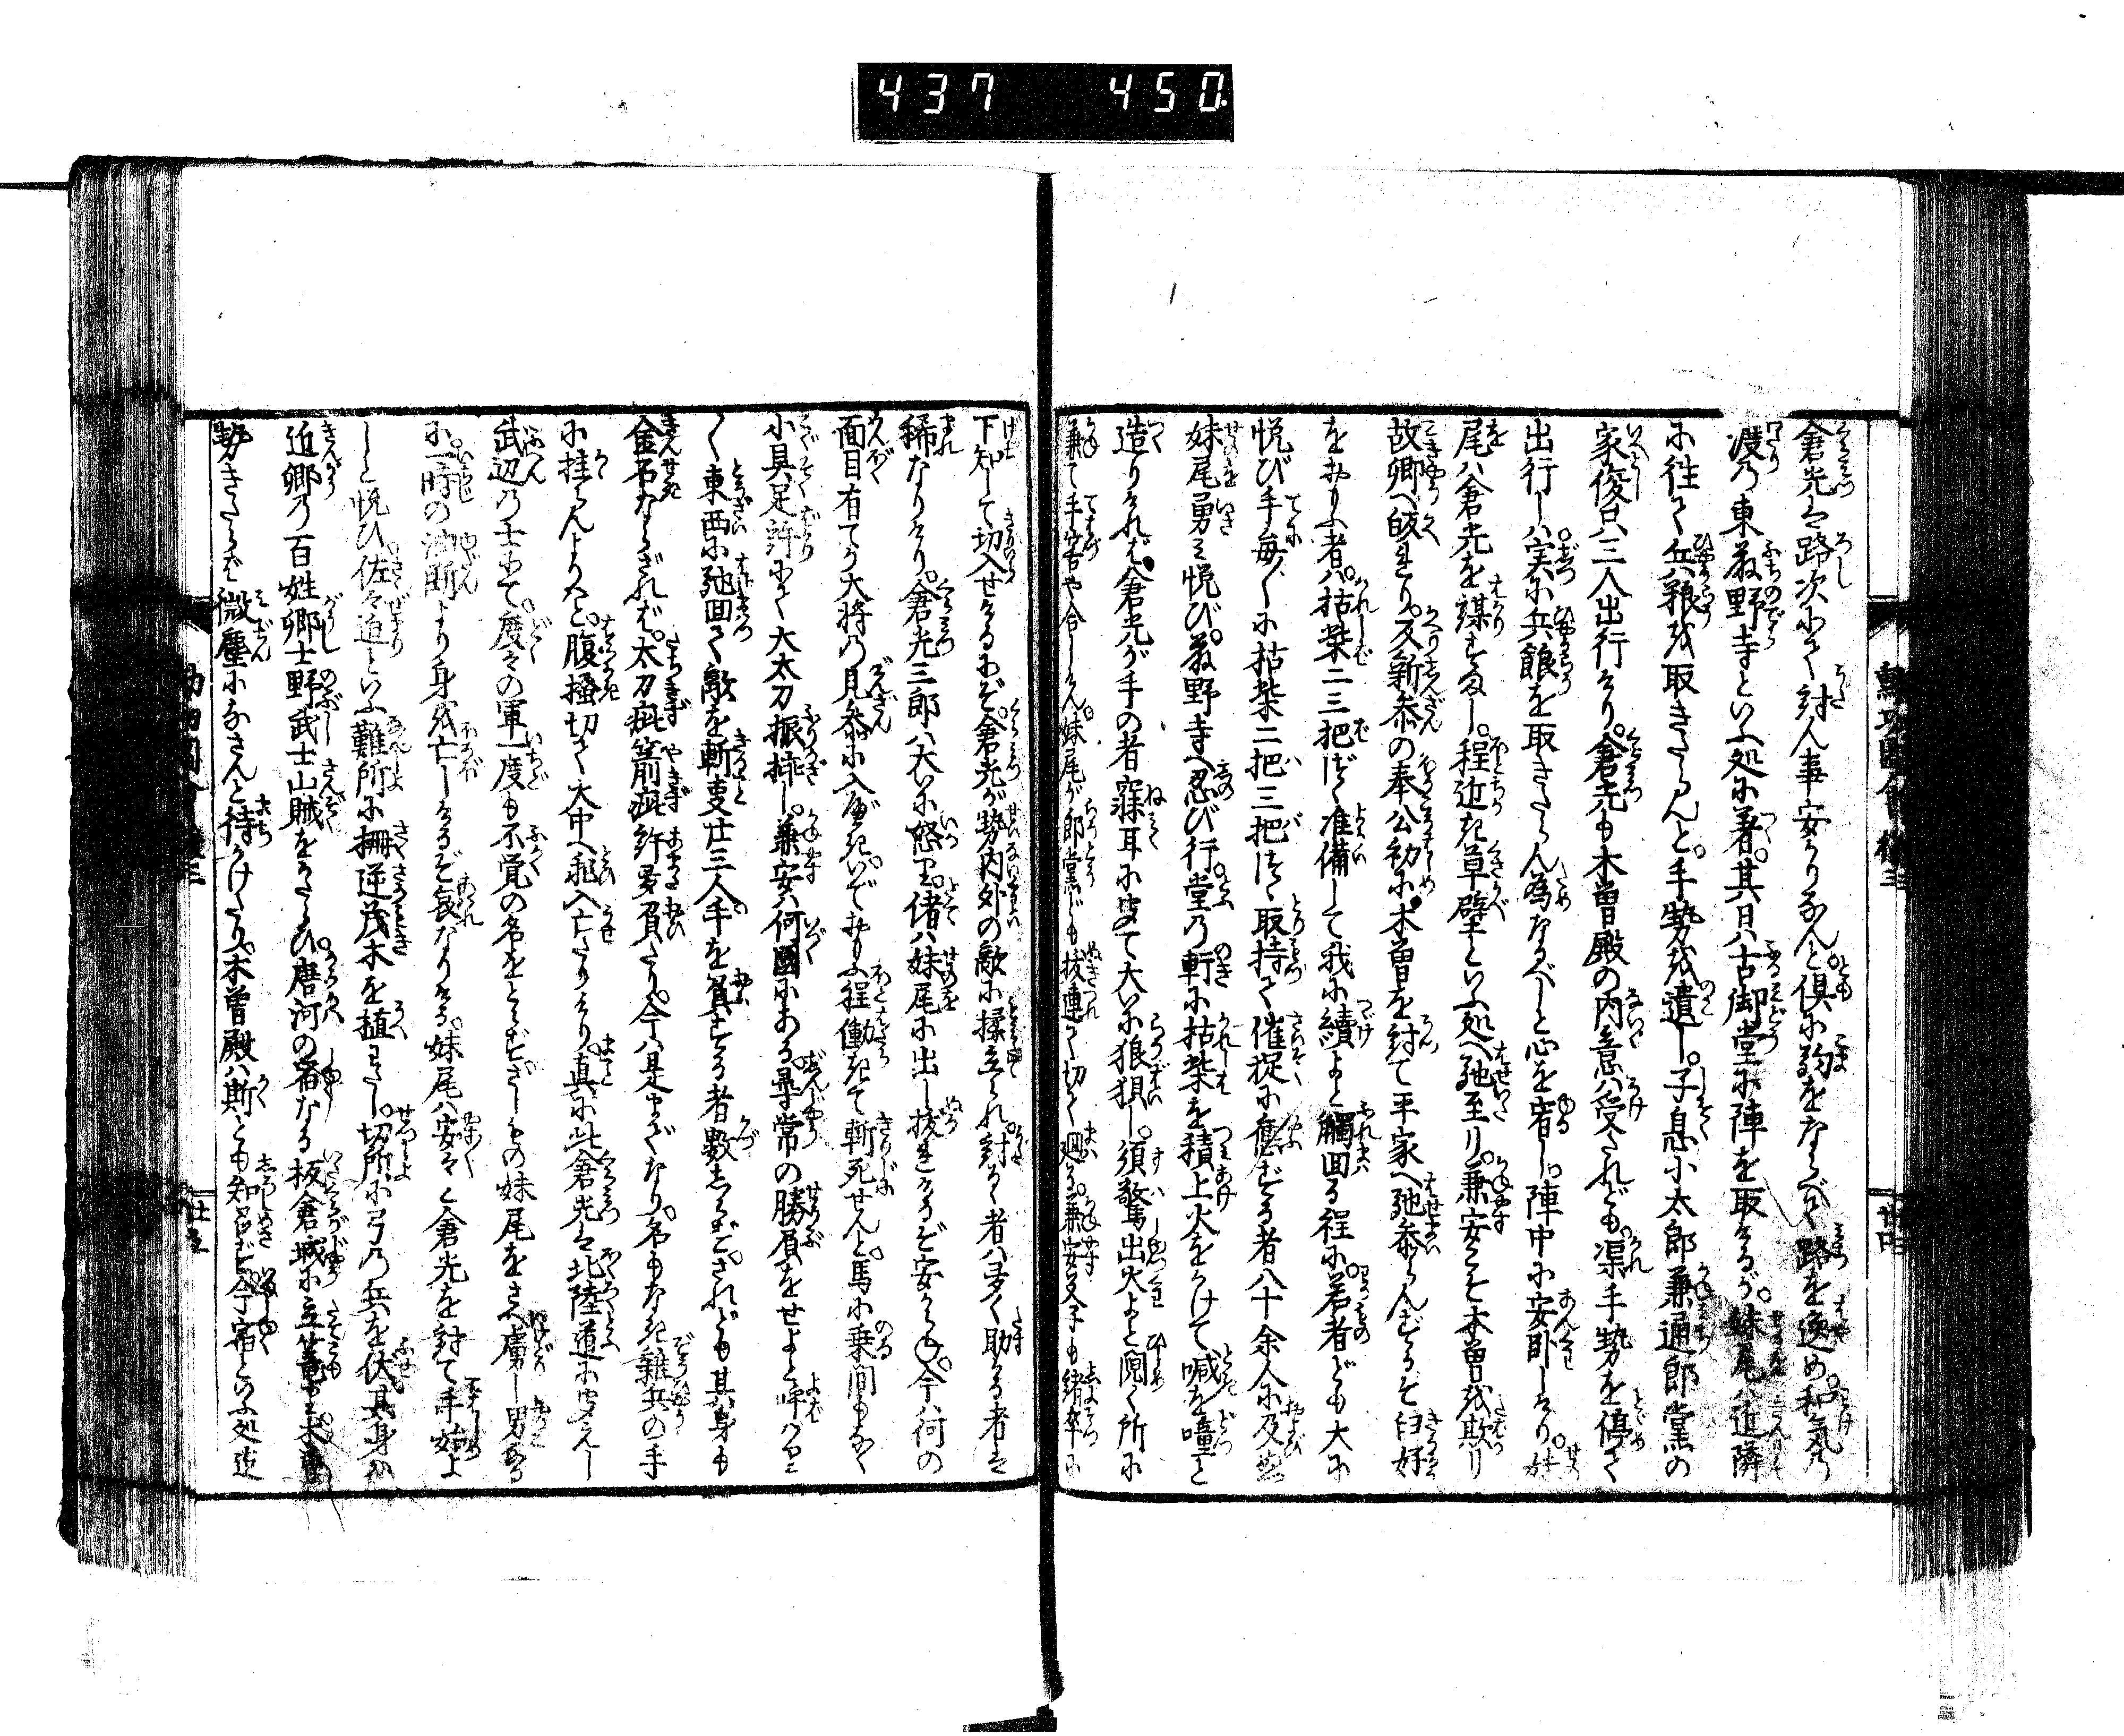 437 450
倉光を路次にて討ん事安かりなんと倶に駒をならべ路を速め和気の
渡の東藤野寺といふ処に著其日八古御堂に陣を取けるが妹尾八近隣
に往て兵粮を取きたらんと手勢を遺し子息小太郎兼通郎党の
家俊只三人出行けり倉光も木曽殿の内意八受たれども渠手勢を停て
出行し八実に兵餉を取きたらん為なるべしと心を宥し陣中に安臥しけり妹
尾八倉光を謀すまし程近き草壁といふ処へ馳至り兼安こそ木曽を欺り
故郷へ皈たり又新参の奉公初に木曽を討て平家へ馳参らんずるぞ旧好
をおもふ者八枯柴二三把づゝ准備して我に続よと触回る程に若者ども大に
悦び手毎〳〵に枯柴二把三把づゝ取持て催促に応ずる者八十余人に及
妹尾勇み悦び藤野寺へ忍び行堂の軒に枯柴を積上火をかけて喊を噇と
造りければ倉光が手の者寐耳に聞て大いに狼狽し須驚出火よと鬩く所に
兼て手筈や合しけん妹尾が郎党ども抜連て切て廻る兼安父子も緒卒に
下知して切入せけるにぞ倉光が勢内外の敵に揉立られ討るゝ者八多く助る者は
稀なりけり倉光三郎八大に怒り偖八妹尾に出し抜れけるぞ安からね今八何の
面目有てか大将の見参に入べきいでおもふ程働きて斬死せんと馬に乗間もなく
小具足許にて大太刀振揮し兼安八何国にある尋常の勝負をせよと呼八り
て東西に馳回て敵を斬事廿三人手を負する者数しらずされども其身も
金石ならざれば太刀疵箭疵許多負たり今八是までなり名もなき雑兵の手
に挂らんよりはと腹掻切て火中へ飛入亡たりけり真に此倉光は北陸道に聞えし
武辺の士にて度々の軍一度も不覚の名をとらずさしもの妹尾をさへ虜し男なる
に一時の油断より身を亡しけるぞ哀なりける妹尾八安々と倉光を討て手始よ
しと悦ひ佐々迫といふ難所に柵逆茂木を植させ切所に弓の兵を伏其身八
近郷の百姓郷士野武士山賊をかたらひ唐河の宿なる板倉城に立篭り木曽
勢きたらば微塵になさんと待かけたり木曽殿八斯とも知召ず今宿といふ処迄